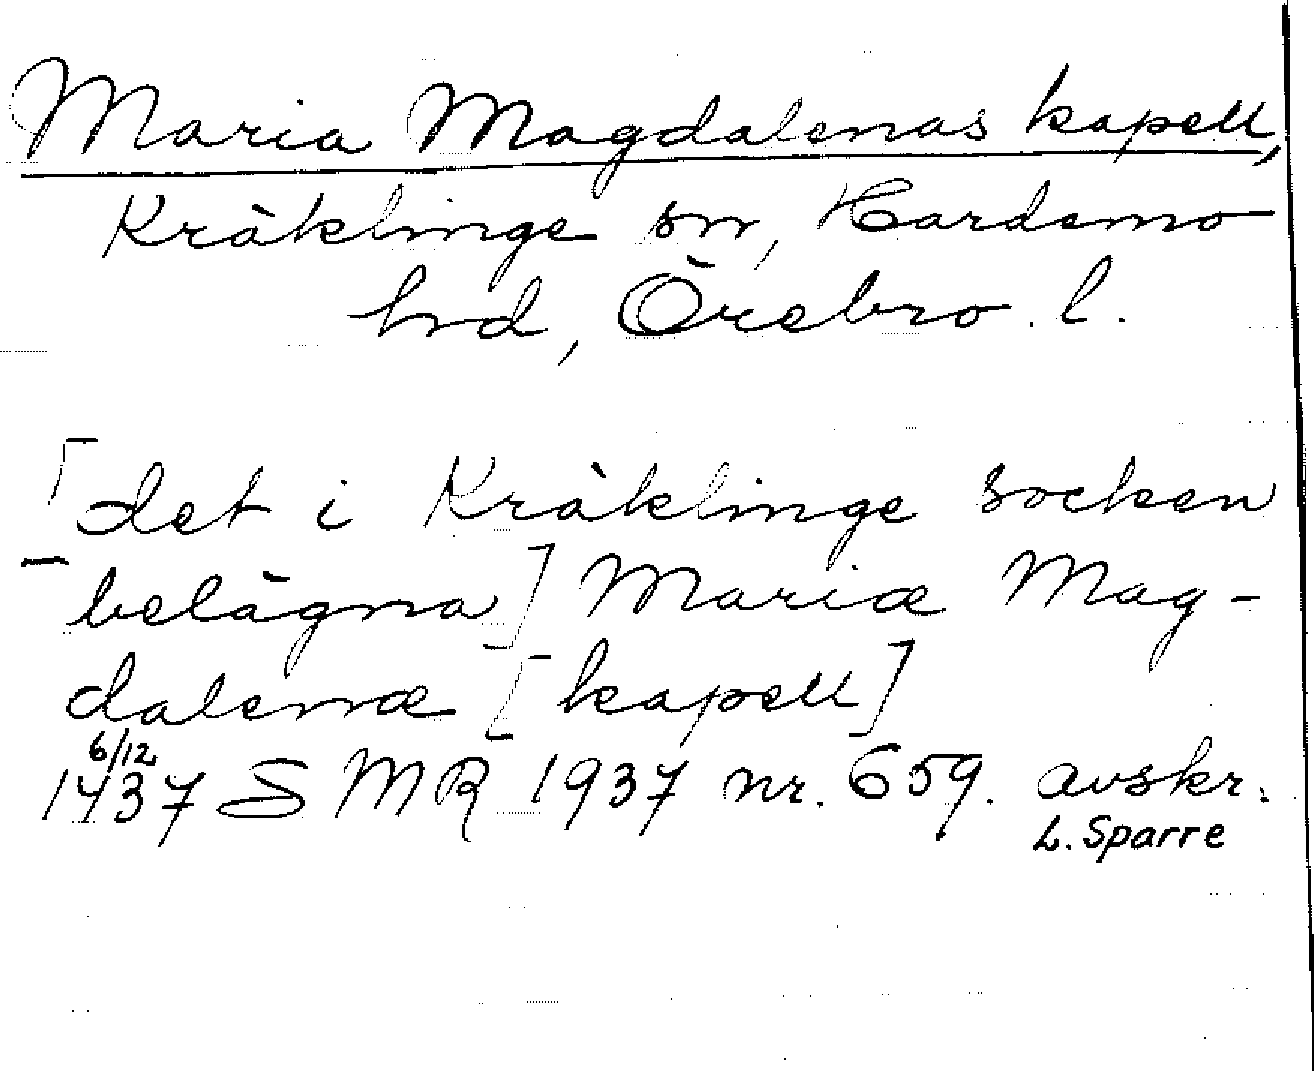 Maria Magdalenas kapell,
Kräklinge sn, Hardemo
hrd, Örebro l.
[det i Kräklinge socken
belägna] Mariæ Mag-
dalenæ [kapell]
6/12
1437 SMR 1937 nr. 659. avskr.
L. Sparre